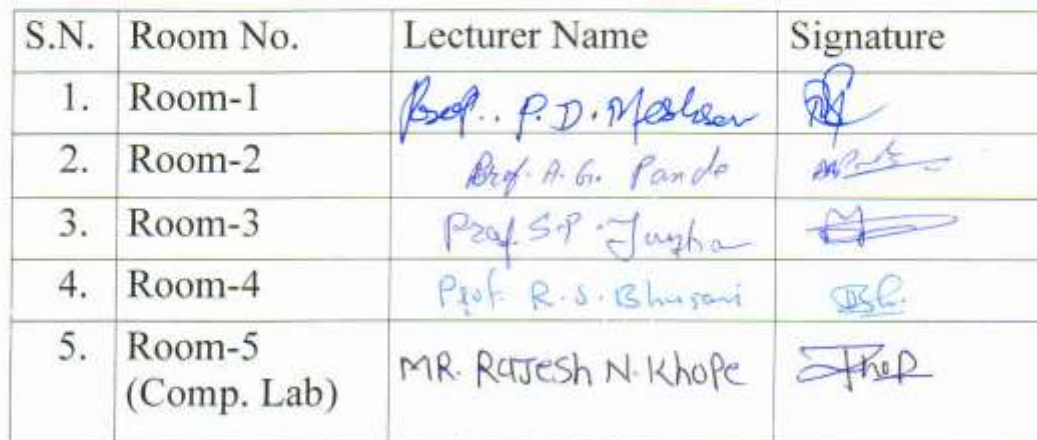 S.N. Room No. Lecturer Name Signature
1. Room-1 Prof.. P.D. Meshram
2. Room-2 Prof. A. G. Pande
3. Room-3 Prof. S.P.
4. Room-4 Prof. R.S. Bhusari
5. Room-5 MR. RAJESH N. KhoPe
(Comp. Lab)